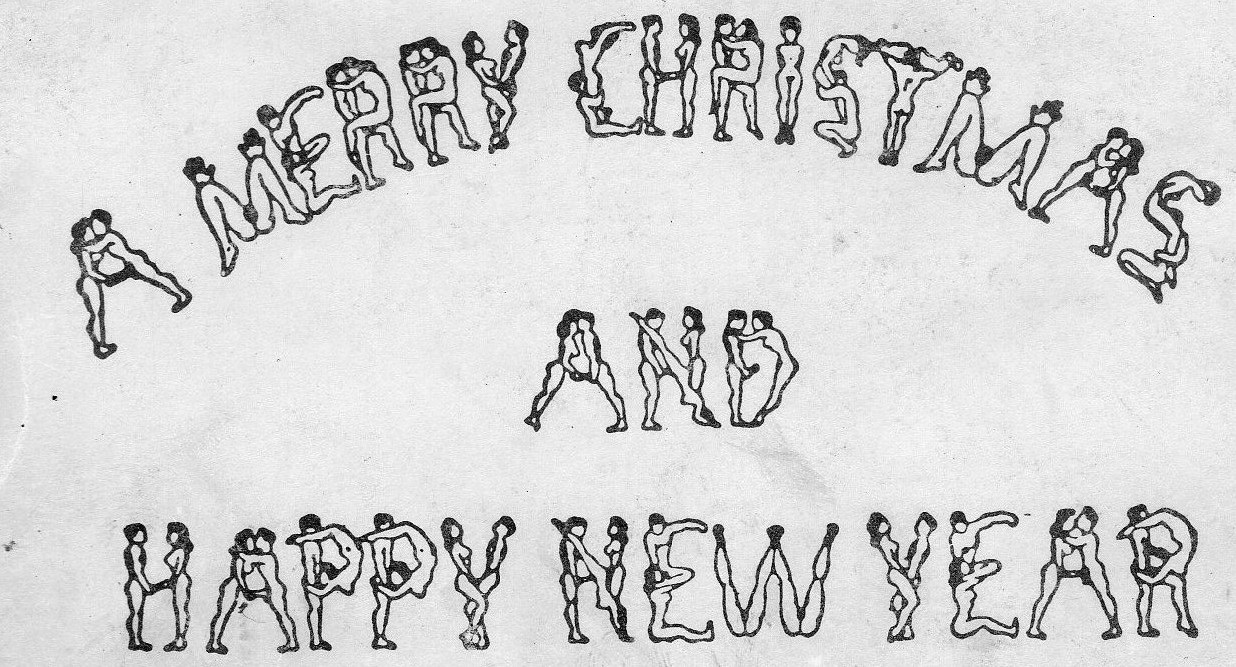 A MERRY CHRISTMAS
AND
HAPPY NEW YEAR